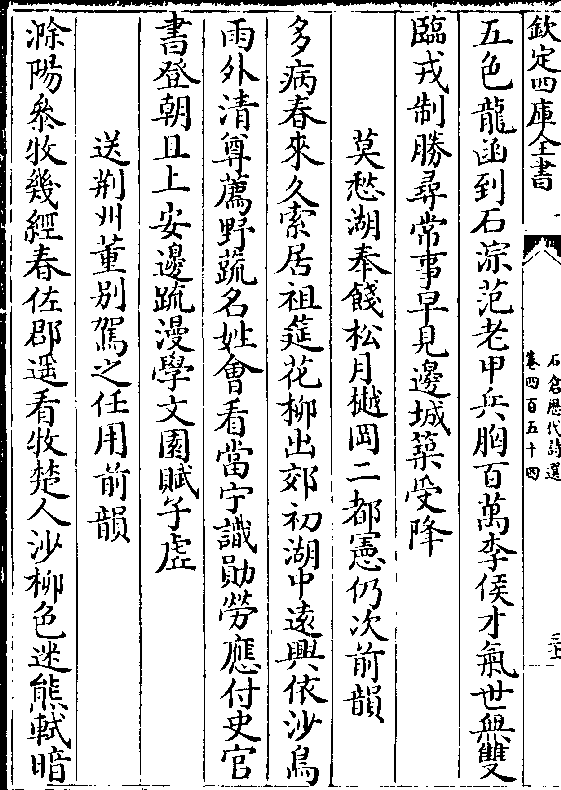 欽定四庫全書
石倉歷代詩選
卷四百五十四
五色龍函到石淙范老甲兵胸百萬李侯才氣世無雙
臨戎制勝尋常事早見邊城築受降
莫愁湖奉餞松月樾岡二都憲仍次前韻
多病春來久索居祖筵花柳出郊初湖中遠興依沙鳥
雨外清尊薦野蔬名姓會看當宁識勛勞應付史官
書登朝且上安邊疏漫學文園賦子虛
送荆州董别駕之任用前韻
滁陽叅牧幾經春佐郡遥看牧楚人沙柳色迷熊軾暗